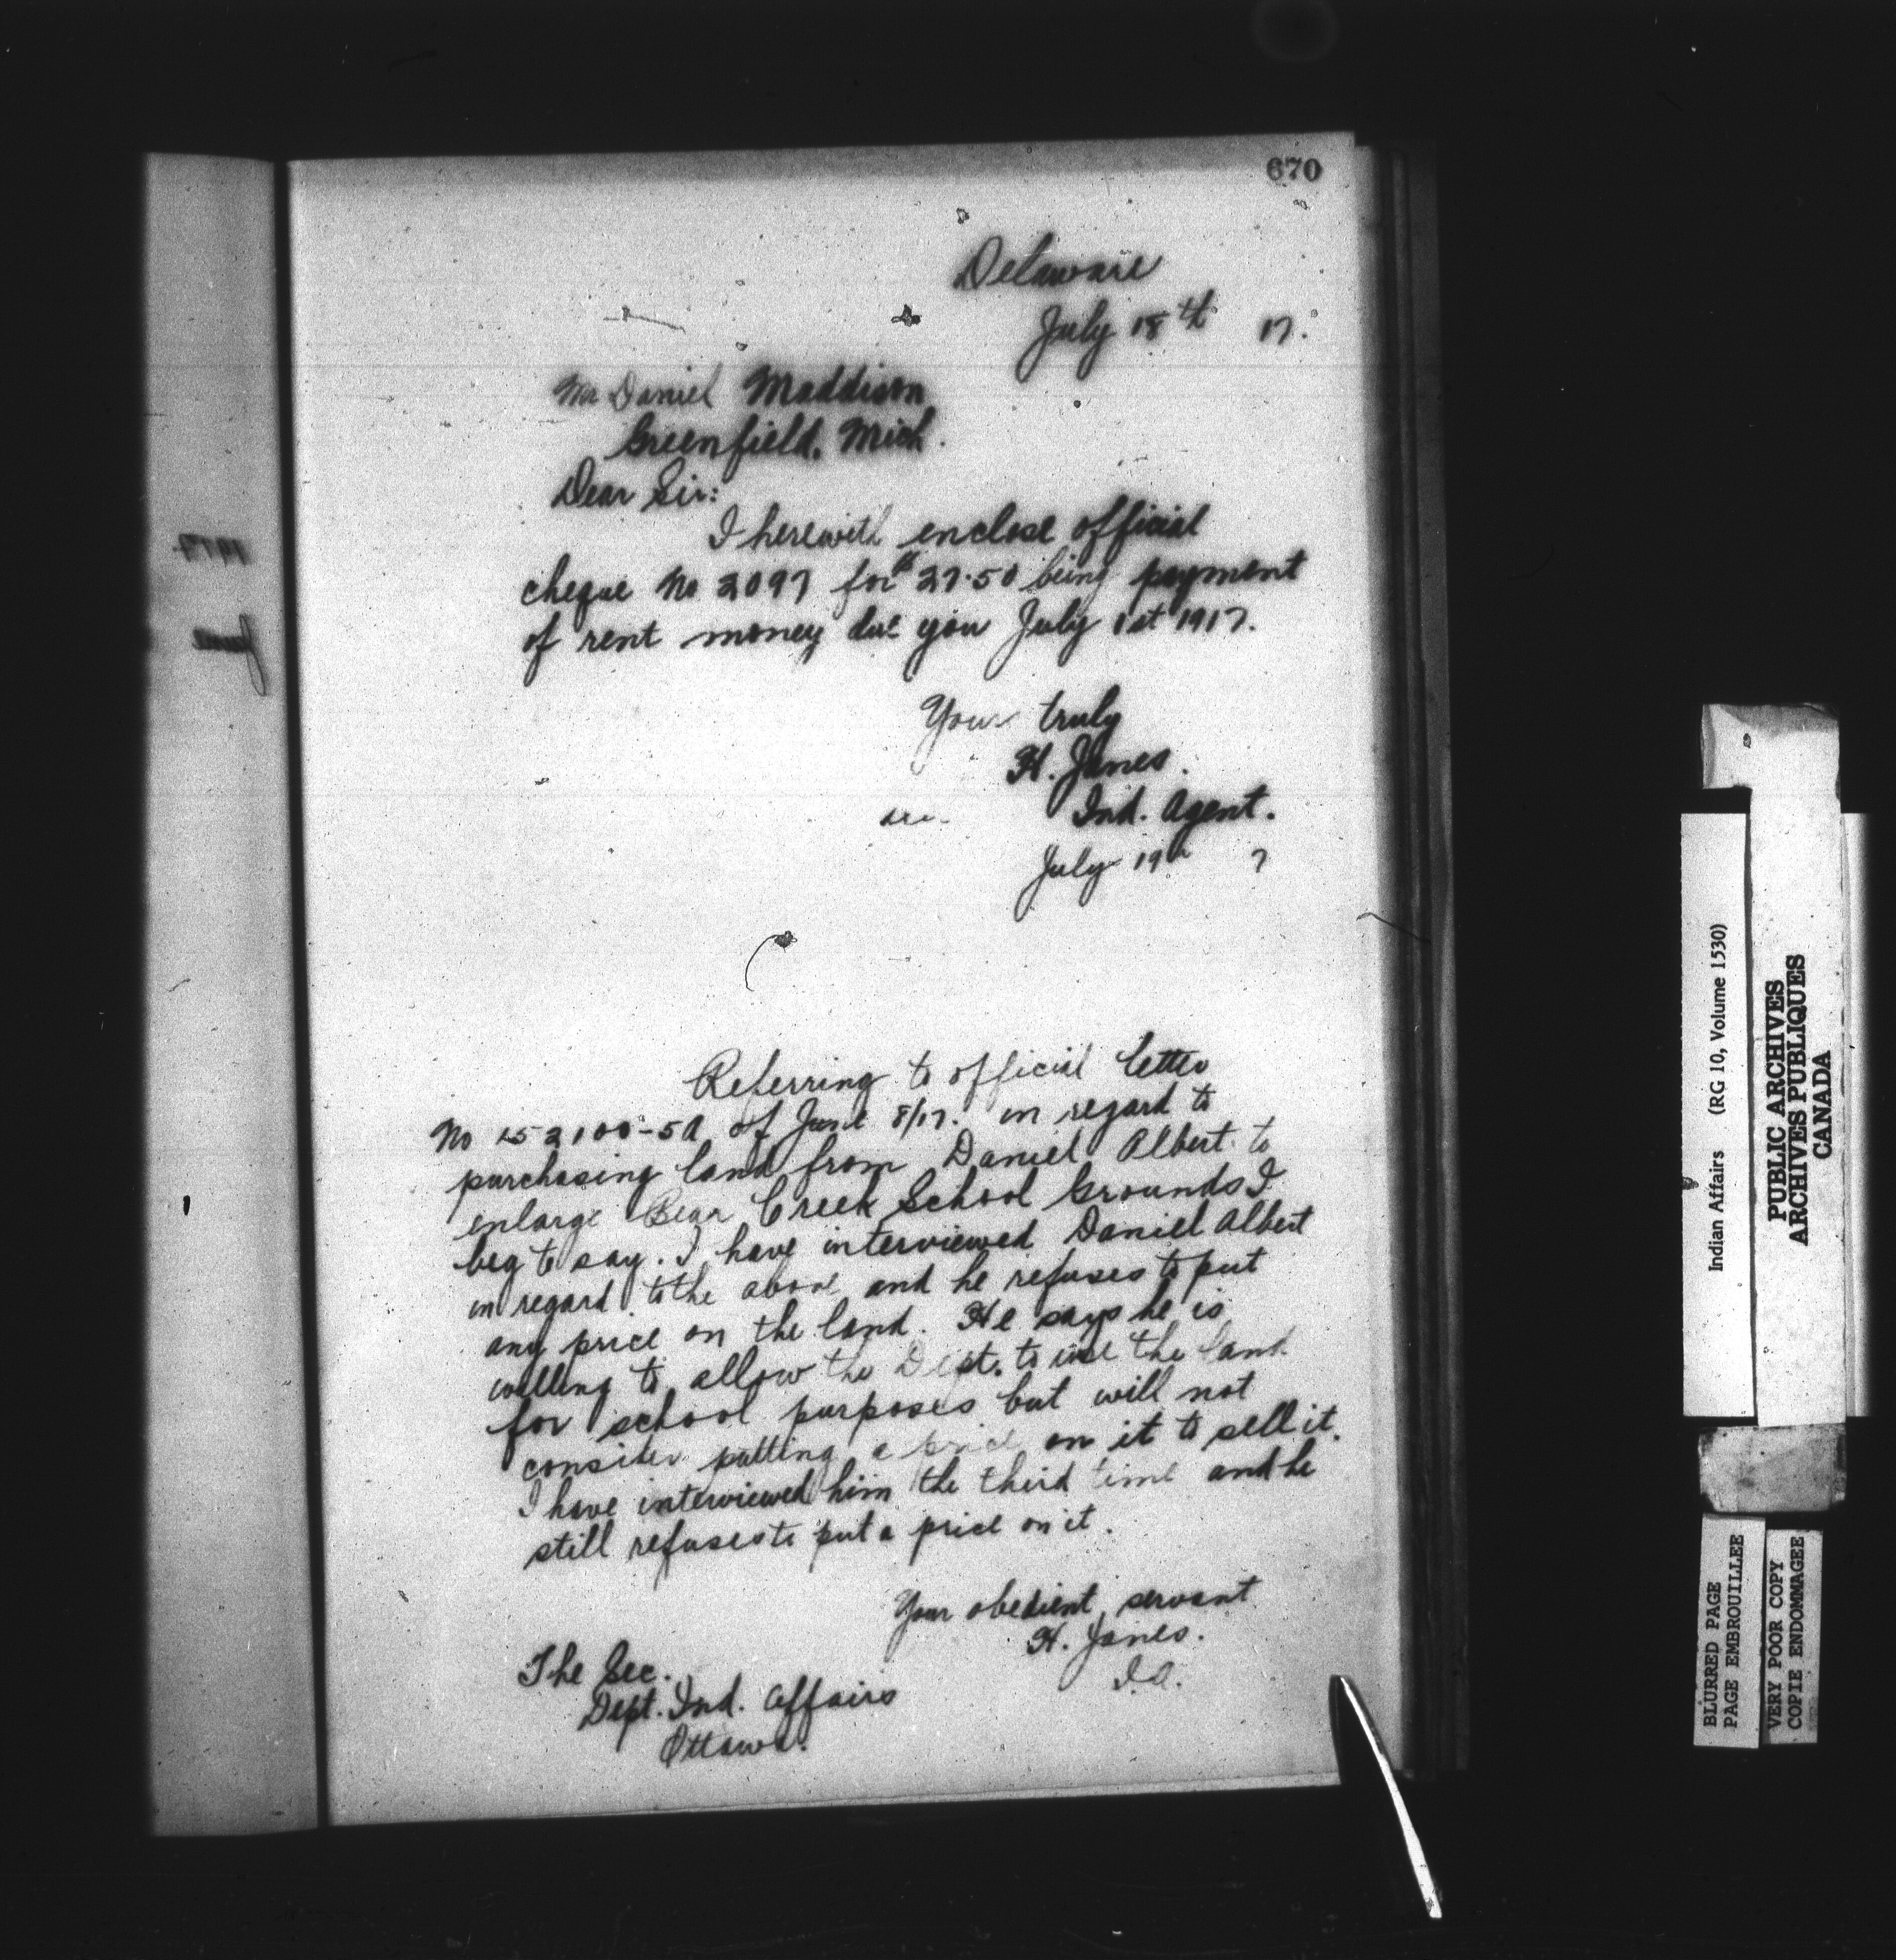 670
Delaware
July 18th 17.
Mr Daniel Maddison
Greenfield. Mich.
Dear Sir:
I herewith enclose official
cheque No 2097 for $27.50 being payment
of rent money due you July 1st 1917.
Your truly
H. Janes.
Ind. Agent.
July 19th 7
Referring to official letter
No 152100-5A of June 8/17. in regard to
purchasing land from Daniel Albert to
enlarge Bear Creek School Grounds I
beg to say. I have interviewed Daniel Albert
in regard to the above and he refuses to put
any price on the land. He says he is
willing to allow the Dept. to use the land
for school purposes but will not
consider putting a price on it to sell it.
I have interviewed him the third time and he
still refuses to put a price on it.
Your obedient servant
H. Janes.
I.A.
The Sec.
Dept. Ind. Affairs
Ottawa.
June
Indian Affairs (RG 10, Volume 1530)
PUBLIC ARCHIVES
ARCHIVES PUBLIQUES
CANADA
BLURRED PAGE
PAGE EMBROUILLEE
VERY POOR COPY
COPIE ENDOMMAGEE